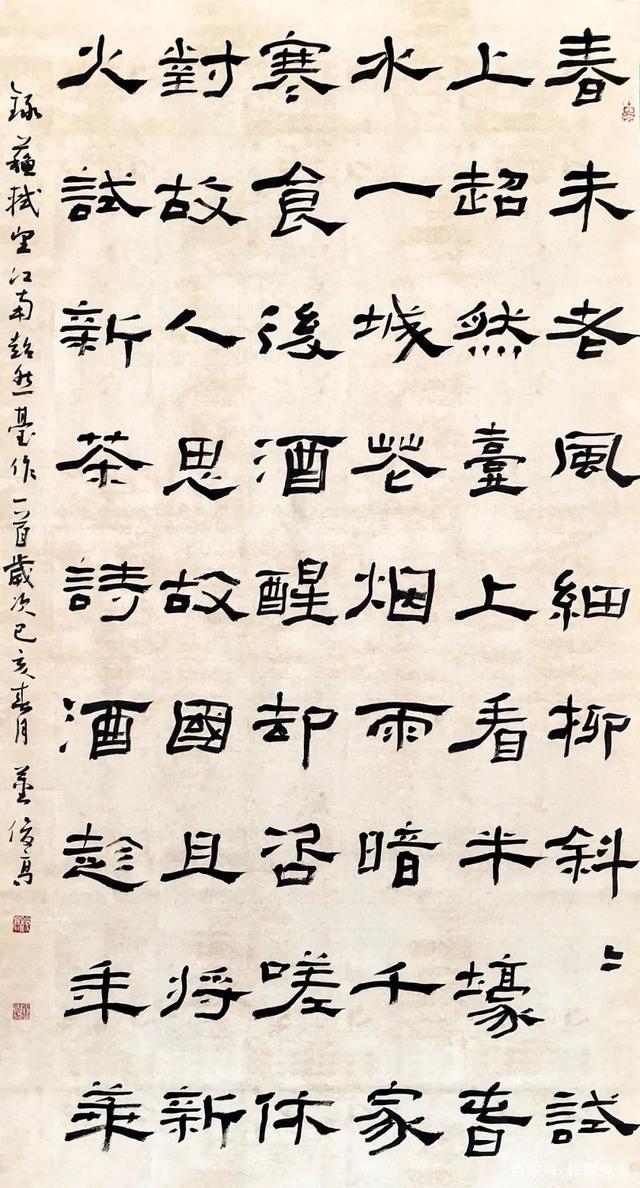 春未老風細柳斜〻試
上超然臺上看半壕春
水一城花烟雨暗千家
寒食後酒醒却咨嗟休
對故人思故國且將新
火試新茶詩酒趁年華
錄蘇軾望江南超然臺作一首歲次己亥春月
百家号/作家鬼谭